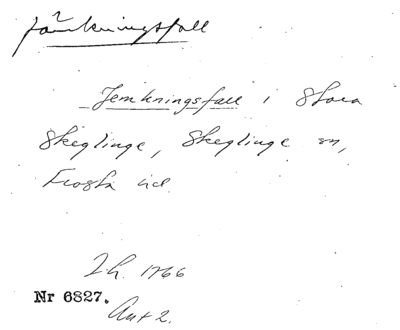 Jämkningsfall
Jemkningsfall i Stora
Skeglinge, Skeglinge sn,
Frosta hd
Lh. 1766
Nr 6827.
Akt 2.